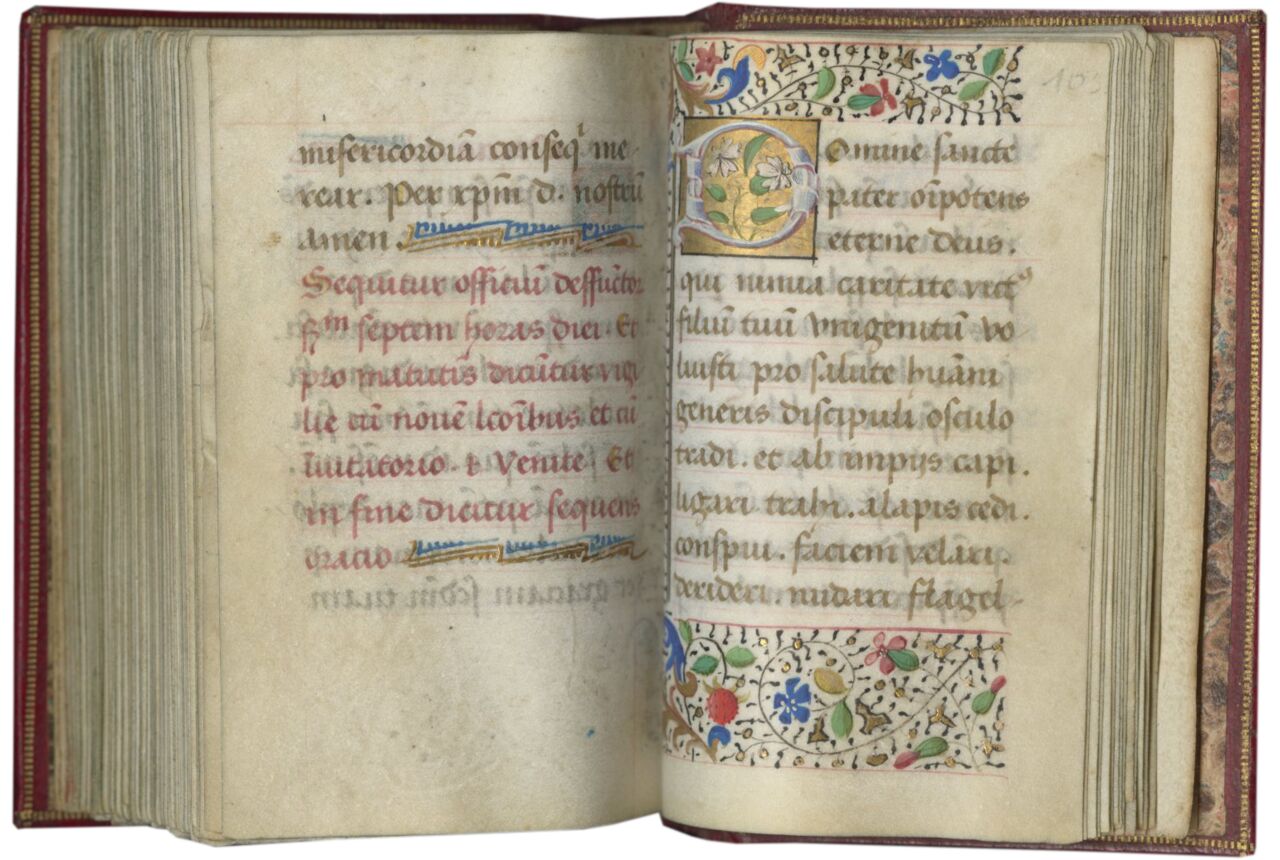 misericordiā conseq̄ me
rear. Per xpm̄ d. nostrū
amen.
Sequitur officiū deffūctor
scdm septem horas diei Et
pro matutīs dicūtur vigi
lie cū novē lcōībus et cū
Inuitatorio. & Venite Et
in fine dicitur sequens
oracio
103
Domine sancte
pater oīpotens
eterne deus.
qui nimia caritate vict⁹
filiū tuū vnigenitū vo
luisti pro salute huāni
generis discipuli osculo
tradi. et ab impijs capi.
ligari trahi. alapis cedi.
conspui. faciem velari.
derideri. nudari flagel-